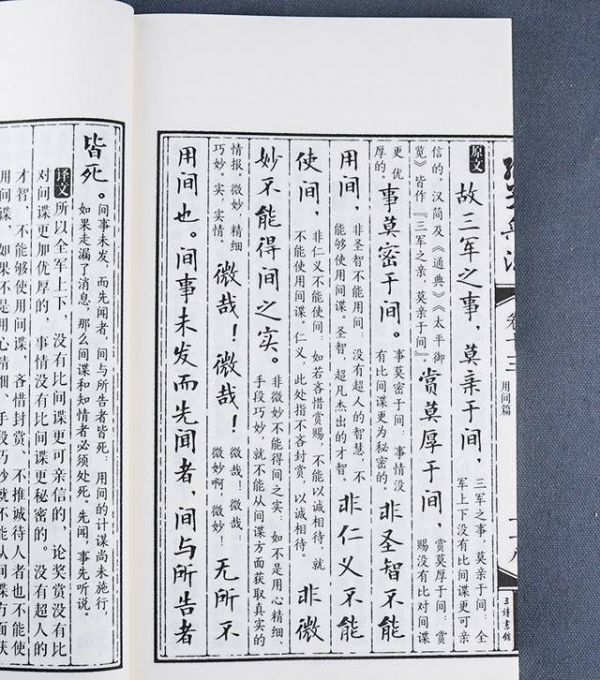 用间篇
原文 故三军之事，莫亲于间，
三军之事，莫亲于间：全
军上下没有比间谍更可亲
信的，汉简及《通典》《太平御
览》皆作『三军之亲，莫亲于间』。
赏莫厚于间，
赏莫厚于间：赏
赐没有比对间谍
更优
厚的。
事莫密于间。
事莫密于间：事情没
有比间谍更为秘密的。
非圣智不能
用间，
非圣智不能用间：没有超人的智慧，不
能够使用间谍。圣智，超凡杰出的才智。
非仁义不能
使间，
非仁义不能使间：如若吝惜赏赐，不能以诚相待，就
不能使用间谍。仁义，此处指不吝封赏，以诚相待。
非微
妙不能得间之实。
非微妙不能得间之实：如不是用心精细、
手段巧妙，就不能从间谍方面获取真实的
情报。微妙，精细
巧妙。实，实情
微哉！微哉！
微哉！微哉：
微妙啊，微妙！
无所不
用间也。间事未发而先闻者，间与所告者
皆死。
间事未发，而先闻者，间与所告者皆死：用间的计谋尚未施行，
如果走漏了消息，那么间谍和知情者必须处死。先闻，事先听说。
译文 所以全军上下，没有比间谍更可亲信的，论奖赏没有比
对间谍更加优厚的，事情没有比间谍更秘密的。没有超人的
才智，不能够使用间谍，吝惜封赏、不推诚待人者也不能使
用间谍，如果不是用心精细、手段巧妙就不能从间谍方面获